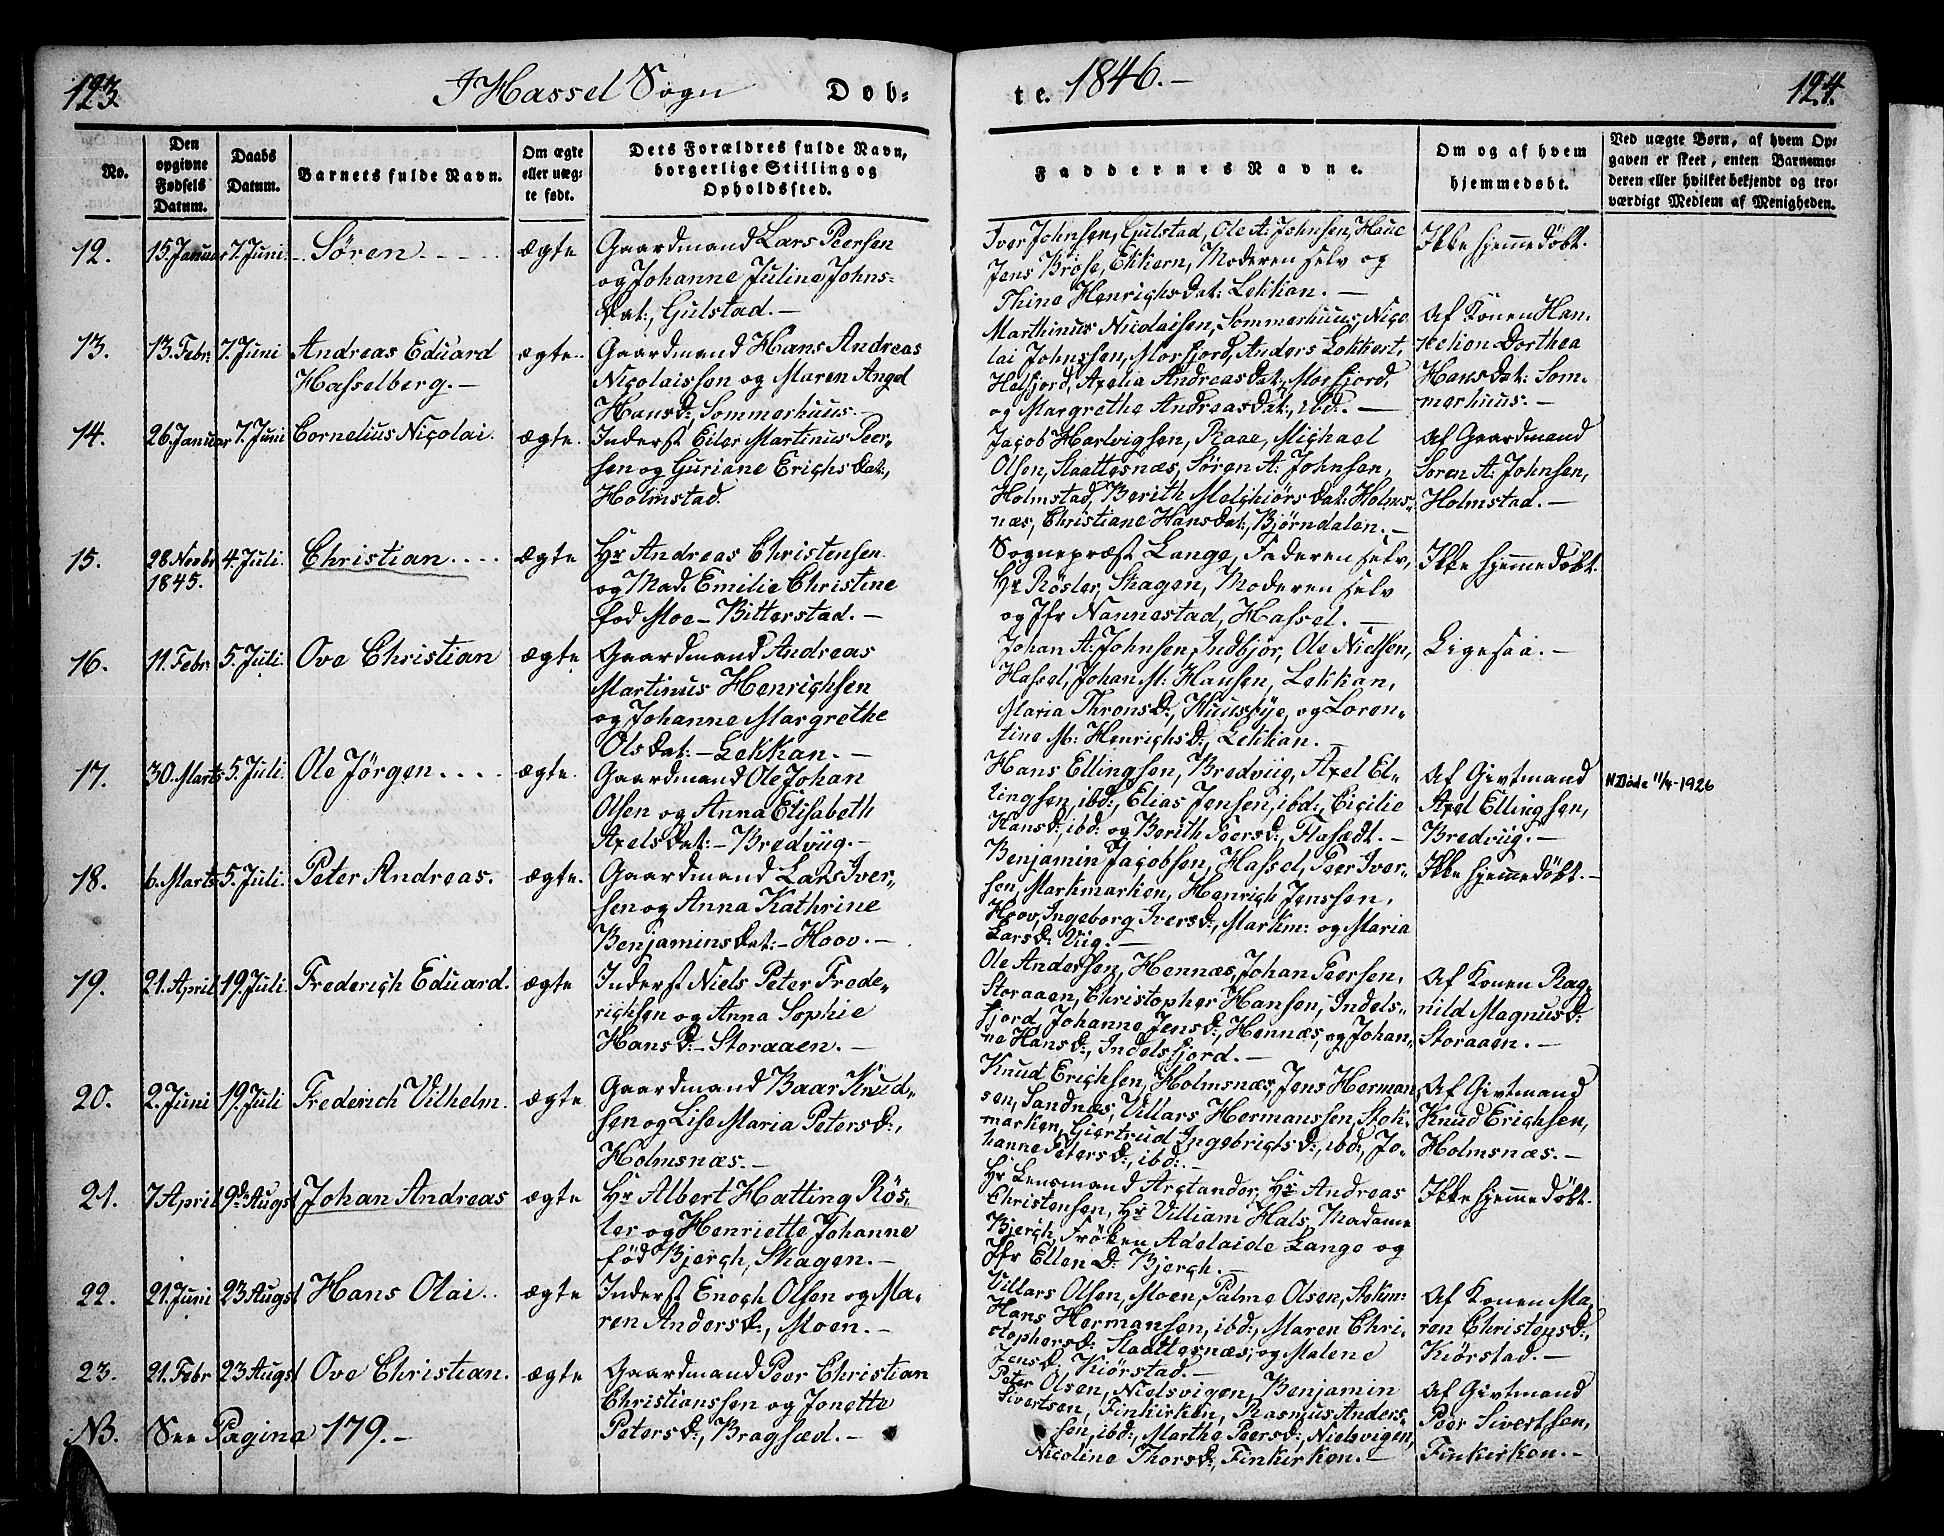 123.
I Hassel Sogn
Døb-
te.
1846.-
124.
No.
Den
opgivne
Fødsels
Datum.
Daabs
Datum.
Barnets fulde Navn.
Om ægte
eller uæg-
te født.
Dets Forældres fulde Navn,
borgerlige Stilling og
Opholdssted.
Faddernes Navne.
Om og af hvem
hjemmedøbt.
Ved uægte Børn, af hvem Op-
gaven er skeet, enten Barnemo-
deren eller hvilket bekjendt og tro-
værdigt Medlem af Menigheden.
12.
15. Januar
7. Juni
Søren
ægte
Gaardmand Lars Peersen
og Johanne Juline Johns-
Dat:, Gulstad.-
Iver Johnsen, Gulstad, Ole A: Johnsen,
Jens Brose, Ekkern, Moderen selv og
Thine Henrichsdat: Lekkan.-
Ikke hjemmedøbt.
13.
13. Febr:
7. Juni
Andreas Eduard
Hasselberg.-
ægte.
Gaardmand Hans Andreas
Nicolaissen og Maren Angel
Hansd:, Sommerhuus.-
Marthinus Nicolaisen, Sommerhuus, Nico
lai Johnssen, Morfjord, Anders Lokkert,
Helfjord, Axelia Andreasdat:, Morfjord,
og Margrethe Andreasdat:, ibd:.-
Af Konen Han-
Dorthea
Hansdat: Som-
merhuus.-
14.
26. Januar
7. Juni
Cornelius Nicolai.
ægte.
Inderst Eiler Martinus Peer-
sen og Guriane Erichsdat:,
Holmstad.
Jacob Hartvigsen, Raae, Michael
Olsen, Slaattesnæs, Søren A: Johnsen,
Holmstad, Berith Melchiørsdat: Holms-
næs, Christiane Hansdat:, Bjørndalen.-
Af Gaardmand
Søren A: Johnsen,
Holmstad.-
15.
28. Novbr
1845.
4. Juli.
Christian
ægte
Hr Andreas Christensen
og Mad. Emilie Christine
fød Moe - Bitterstad.-
Sognepræst Lange, Faderen selv,
Hr Røsler, Skagen, Moderen selv
og Jfr Nannestad, Hassel.-
Ikke hjemmedøbt.
16.
11. Febr:
5. Juli.
Ove Christian
ægte
Gaardmand Andreas
Martinus Henrichsen
og Johanne Margrethe
Olsdat: - Lekkan.-
Johan A: Johnsen, Indbjør, Ole Nielsen,
Hassel, Johan M: Hansen, Lekkan,
Maria Thronsd:, Huusbye, og Loren-
tine M: Henrichsd:, Lekkan.-
Ligesaa.-
17.
30. Marts
5. Juli.
Ole Jørgen
ægte.
Gaardmand Ole Johan
Olsen og Anna Elisabeth
Axelsdat: - Bredviig.-
Hans Ellingsen, Bredviig, Axel El-
lingsen, ibd:, Elias Jensen, ibd:, Cicilie
Hansd:, ibd: og Berith Peersd:, Flesædt.-
Af Givtmand
Axel Ellingsen,
Bredviig.-
Døde 11/4-1926
18.
6. Marts
5. Juli.
Peter Andreas.
ægte.
Gaardmand Lars Iver-
sen og Anna Kathrine
Benjaminsdat: - Hoov.-
Benjamin Jacobsen, Hassel, Peer Iver-
sen, Markmarken, Henrich Jenssen,
Hoov, Ingeborg Iversd:, Markm: og Maria
Larsd: Viig.-
Ikke hjemmedøbt.-
19.
21. April
19. Juli.
Frederich Eduard.
ægte
Inderst Niels Peter Frede-
richsen og Anna Sophie
Hansd: - Storaaen.-
Ole Andersen, Hennæs, Johan Peersen,
Storaaen, Christopher Hansen, Indels-
fjord, Johanne Jensd:, Hennæs, og Johan-
ne Hansd:, Indelsfjord.-
Af Konen Rag-
nild Magnusd:
Storaaen.-
20.
2. Juni
19. Juli
Frederich Vilhelm.
ægte
Gaardmand Baar Knud-
sen og Lise Maria Petersd:,
Holmsnæs.-
Knud Erichsen, Holmsnæs, Jens Herman
sen, Sandnæs, Villars Hermanssen, Stok-
marken, Giertrud Ingebrigtsd:, ibd:, Jo-
hanne Petersd:, ibd:-
Af Givtmand
Knud Erichsen,
Holmsnæs.-
21.
7 April
9de Augst
Johan Andreas
ægte
Hr Albert Hatting Røs-
ler og Henriette Johanne
fød Bjergh, Skagen.-
Hr Lensmand Arctander, Hr Andreas
Christensen, Hr Villiam Hals, Madame
Bjergh, Frøken Adelaide Lange og
Jfr Ellen D. Bjergh.-
Ikke hjemmedøbt.
22.
21. Juni
23 Augst
Hans Olai.
ægte
Inderst Enoch Olsen og Ma-
ren Andersd:, Moen.-
Villars Olsen, Moen, Palme Olsen,
Hans Hermansen, ibd:, Maren Chri-
stophersd: Slaattesnæs, og Malene
Jensd:, Kiørstad.-
Af Konen Ma-
ren Christensd:,
Kiørstad.-
23.
21. Febr
23 Augst
Ove Christian.
ægte
Gaardmand Peer Christian
Christianssen og Jonette
Petersd:, Bragsæd.-
Peter Olsen, Nielsvigen, Benjamin
Sivertsen, Finkirken, Rasmus Anders-
sen, ibd:, Marthe Peersd:, Nielsvigen,
Nicoline Thorsd:, Finkirken.-
Af Givtmand
Peer Sivertsen,
Finkirken.-
NB.
See Pagina 179.-